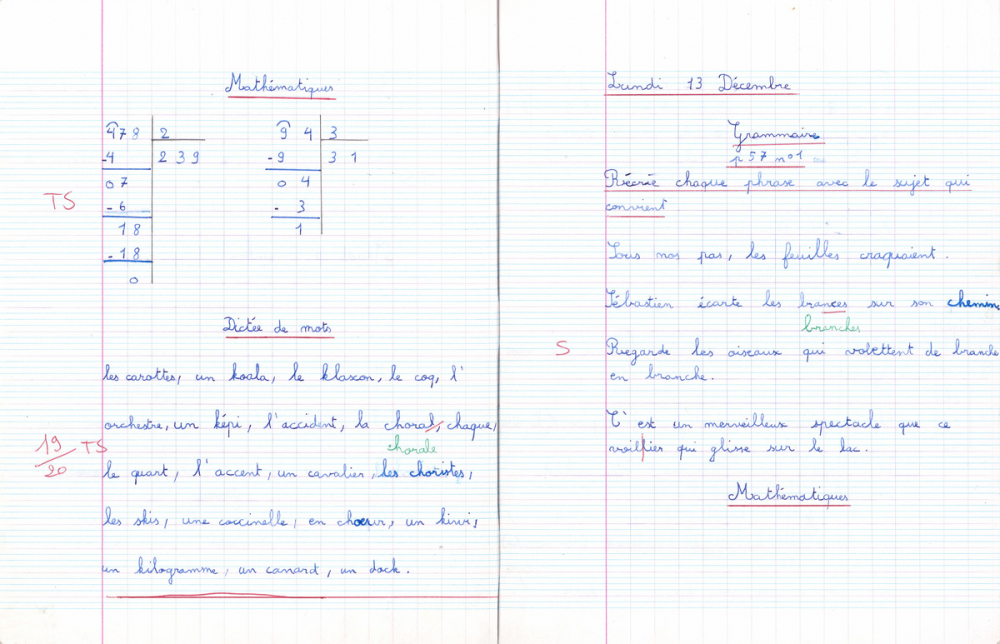 Mathématiques
478 2
-4 239
07
TS
-6
18
-18
0
9 4 3
-9 3 1
0 4
- 3
1
Dictée de mots
les carottes, un koala, le klaxon, le coq, l'
orchestre, un képi, l'accident, la choral, chaque,
chorale
19/20 TS
le quart, l'accent, un cavalier, les choristes,
les skis, une coccinelle, en chœur, un kiwi,
un kilogramme, un canard, un dock.
Lundi 13 Décembre
Grammaire
p 57 n°1
Réécrie chaque phrase avec le sujet qui
convient
Sous nos pas, les feuilles craquaient.
Sébastien écarte les brances sur son chemin
branches
S
Regarde les oiseaux qui volettent de branche
en branche.
C'est un merveilleux spectacle que ce
voillier qui glisse sur le lac.
Mathématiques